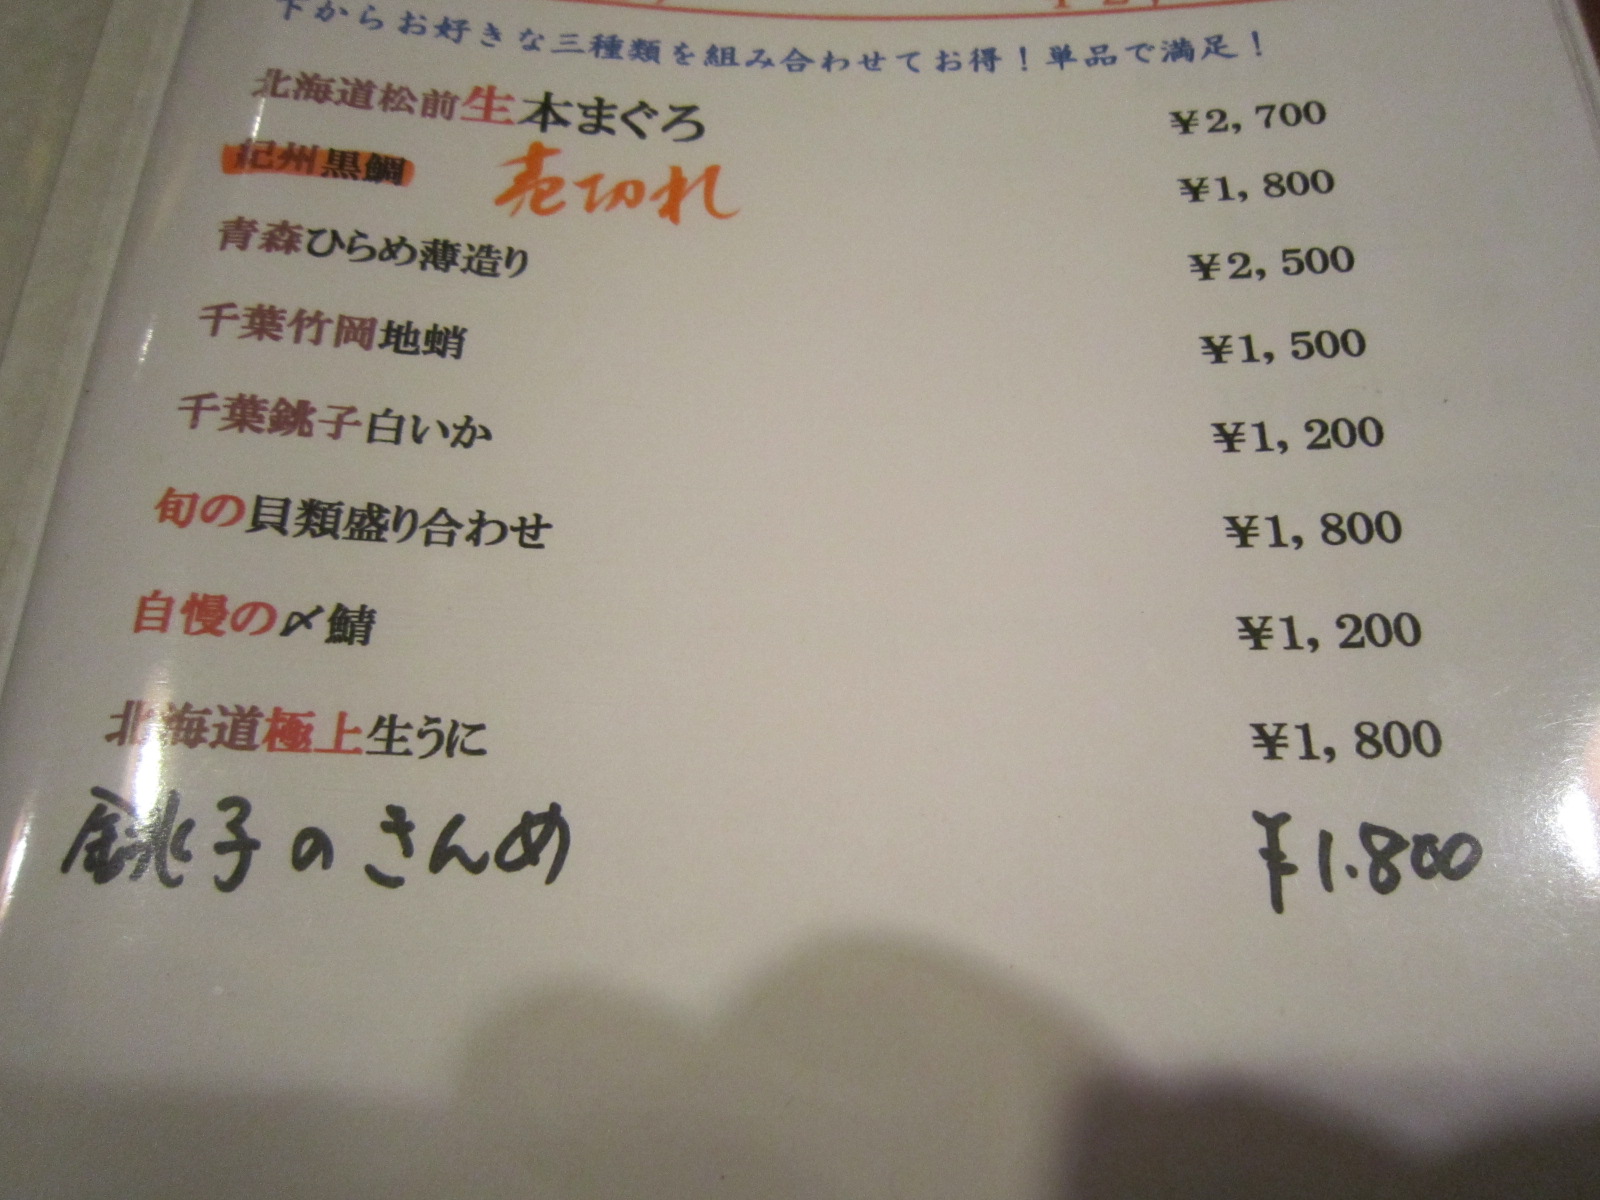 下からお好きな三種類を組み合わせてお得！単品で満足！
北海道松前生本まぐろ ¥2,700
紀州黒鯛 売切れ ¥1,800
青森ひらめ薄造り ¥2,500
千葉竹岡地蛸 ¥1,500
千葉銚子白いか ¥1,200
旬の貝類盛り合わせ ¥1,800
自慢の〆鯖 ¥1,200
北海道極上生うに ¥1,800
銚子のきんめ ¥1.800